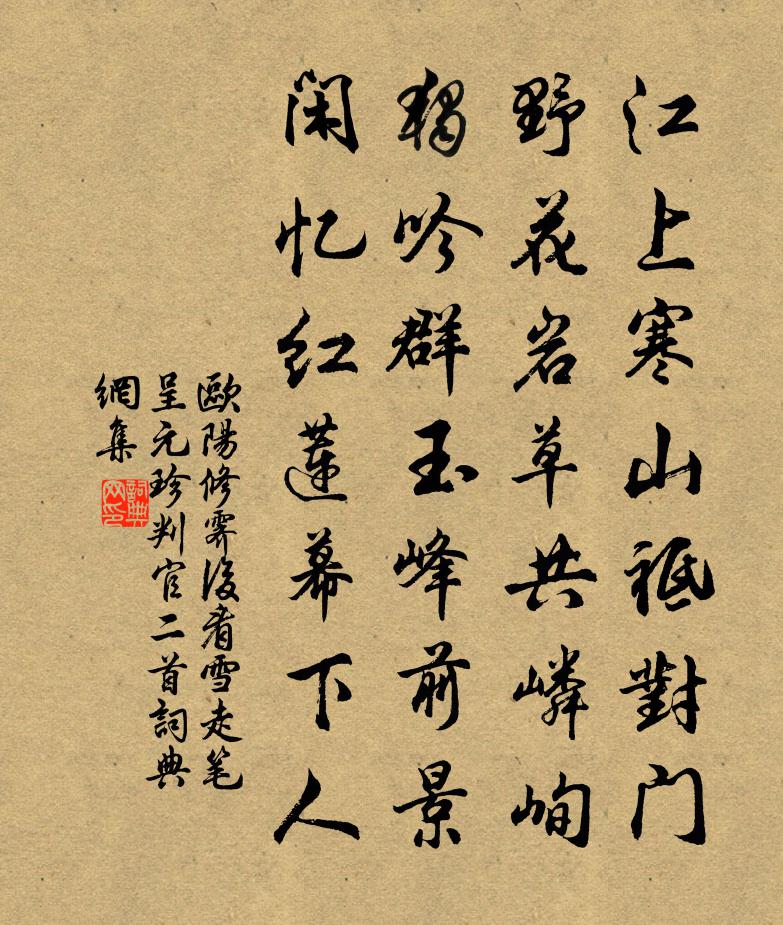 江上寒山祗對门
野花岩草共嶙峋
獨吟群玉峰前景
閑忆红蓮幕下人
歐陽修霽後看雪走笔
呈元珍判官二首詞典
網集
詞典
网印